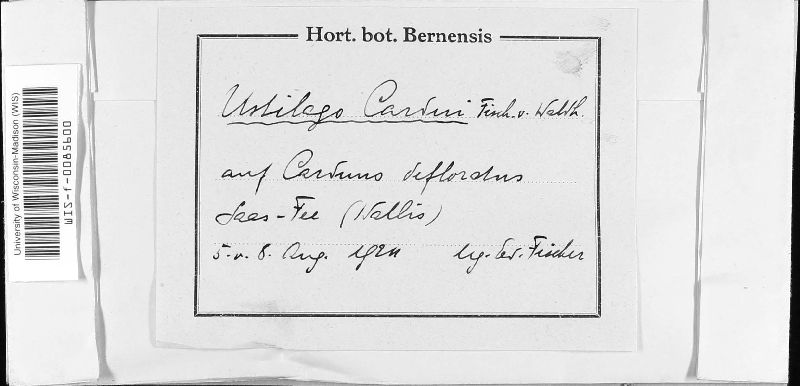 Hort. bot. Bernensis
Ustilago Cardui Fisch. v. Waldh.
auf Carduus defloratus
Saas-Fee (Wallis)
5. u. 8. Aug. leg. Ed. Fischer
University of Wisconsin-Madison (WIS)
WIS-f-0085600